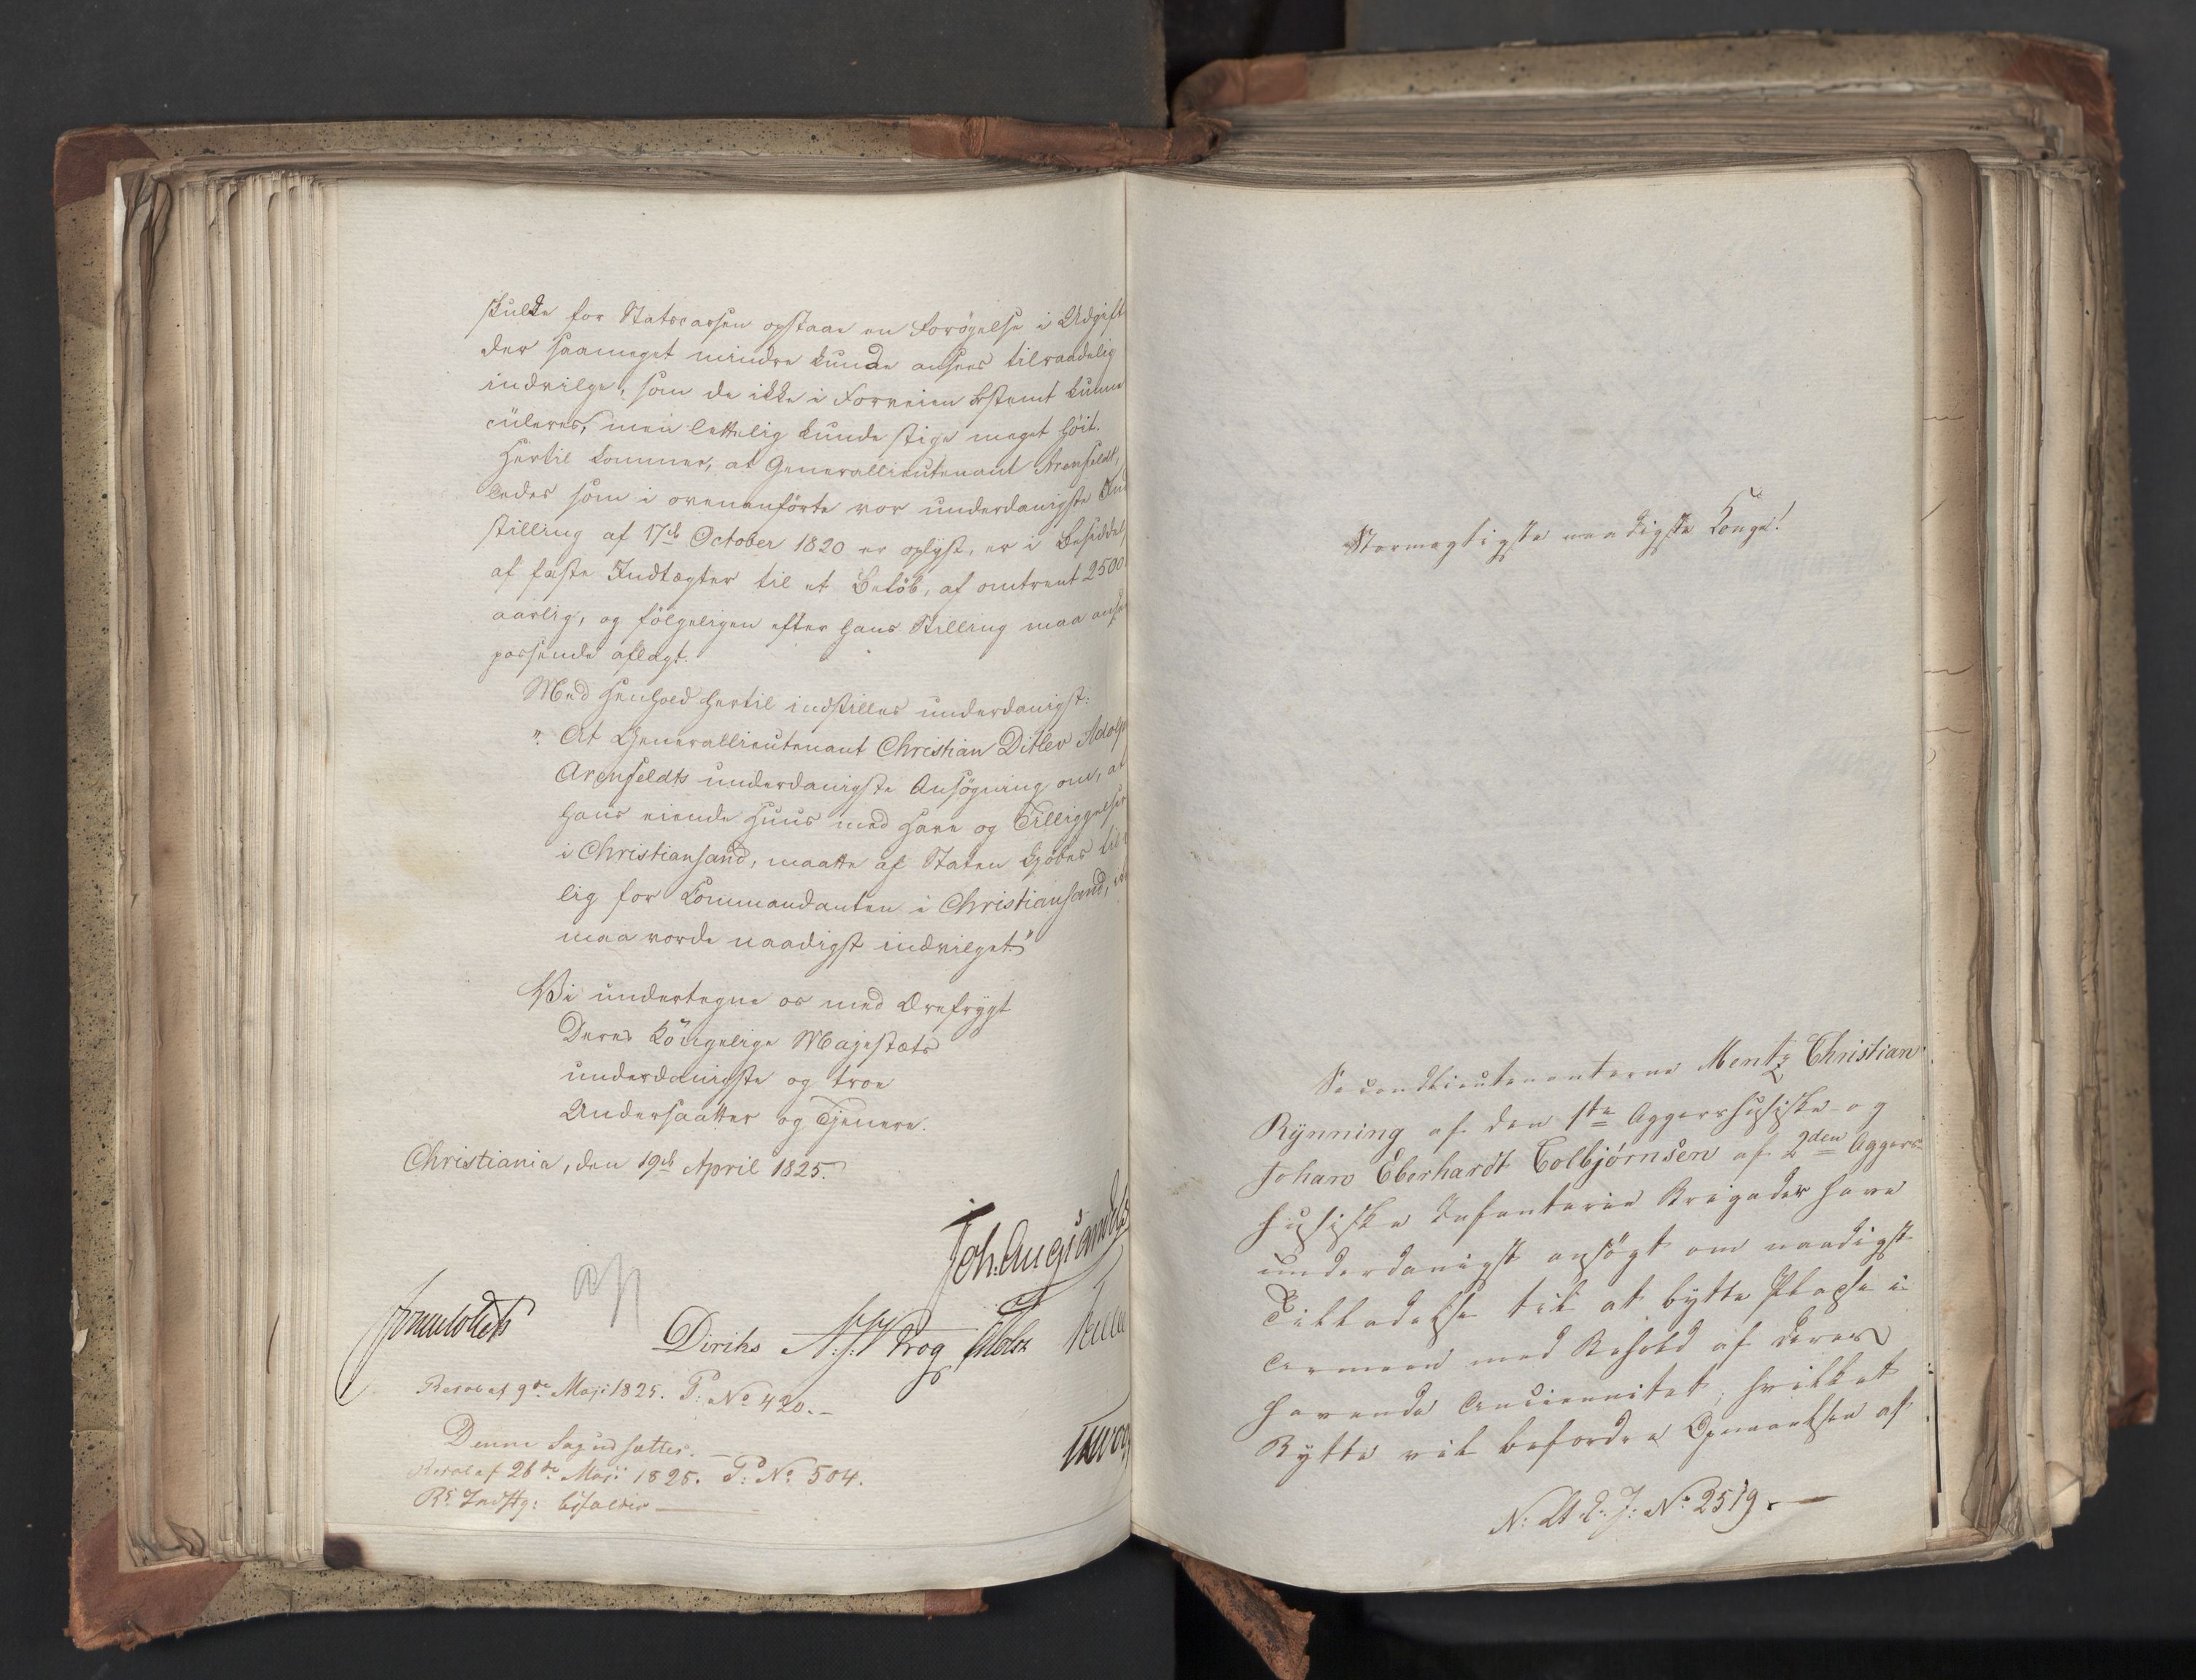 skulde for Statscassen opstaae en Forøgelse i Udgift
der saameget mindre kunde ansees tilraadelig
indvilge, som de ikke i Forveien bestemt kunne
culeres, men lettelig kunde stige meget höit.
Hertil kommer, at Generallieutenant Arenfeldt,
ledes som i ovenanförte vor underdanigste Ind
stilling af 17de October 1820 er oplyst, er i Besiddel
af faste Indtægter til et Belöb, af omtrent 2500
aarlig, og fölgeligen efter hans Stilling maa ansee
passende aflagt.
Med Henhold hertil indstilles underdanigst:
"At Generallieutenant Christian Ditlev Adolph
Arenfeldts underdanigste Ansögning om, at
hans eiende Huus med Have og Tilliggelser
i Christiansand, maatte af Staten kjöbes til
lig for Kommandanten i Christiansand,
maa vorde naadigst indvilget."
Vi undertegne os med Ærefrygt
Deres Kongelige Majestæts
underdanigste og troe
Undersaatter og Tjenere.
Christiania, den 19de April 1825.
Joh. Aug: Sandels
Sommerhielm
Diriks N: J: Krog Holst
Resol af 9de Maji 1825. P: No 420.-
Denne Sag udsættes. -
Resol af 26de Maji 1825. P: No 504.
Rs Indstg: bifaldes -
Stormægtigste naadigste Konge!
Secondlieutenanterne Mentz Christian
Rynning af den 1ste Aggershusiske og
Johan Eberhardt Colbjørnsen af 2den Aggers-
husiske Infanterie Brigader have
underdanigst ansögt om naadigst
Tilladelse til at bytte Pladse i
Armeen med Behold af deres
havende Anciennitet, hvilket
Bytte vil befordre Opnaaelsen af
N: A. 2. J: No 2519. -